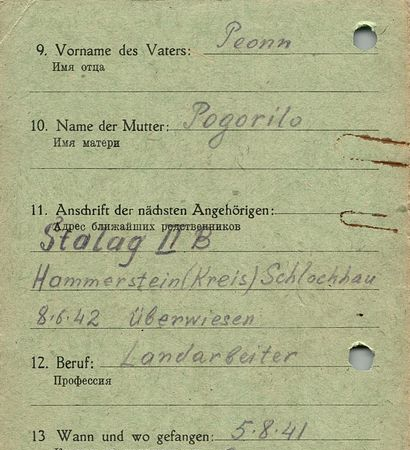 9. Vorname des Vaters: Peonn
Имя отца
10. Name der Mutter: Pogorilo
Имя матери
11. Anschrift der nächsten Angehörigen:
Адрес ближайших родственников
Stalag II B
Hammerstein (Kreis) Schlochhau
8.6.42 Überwiesen
12. Beruf: Landarbeiter
Профессия
13 Wann und wo gefangen: 5.8.41